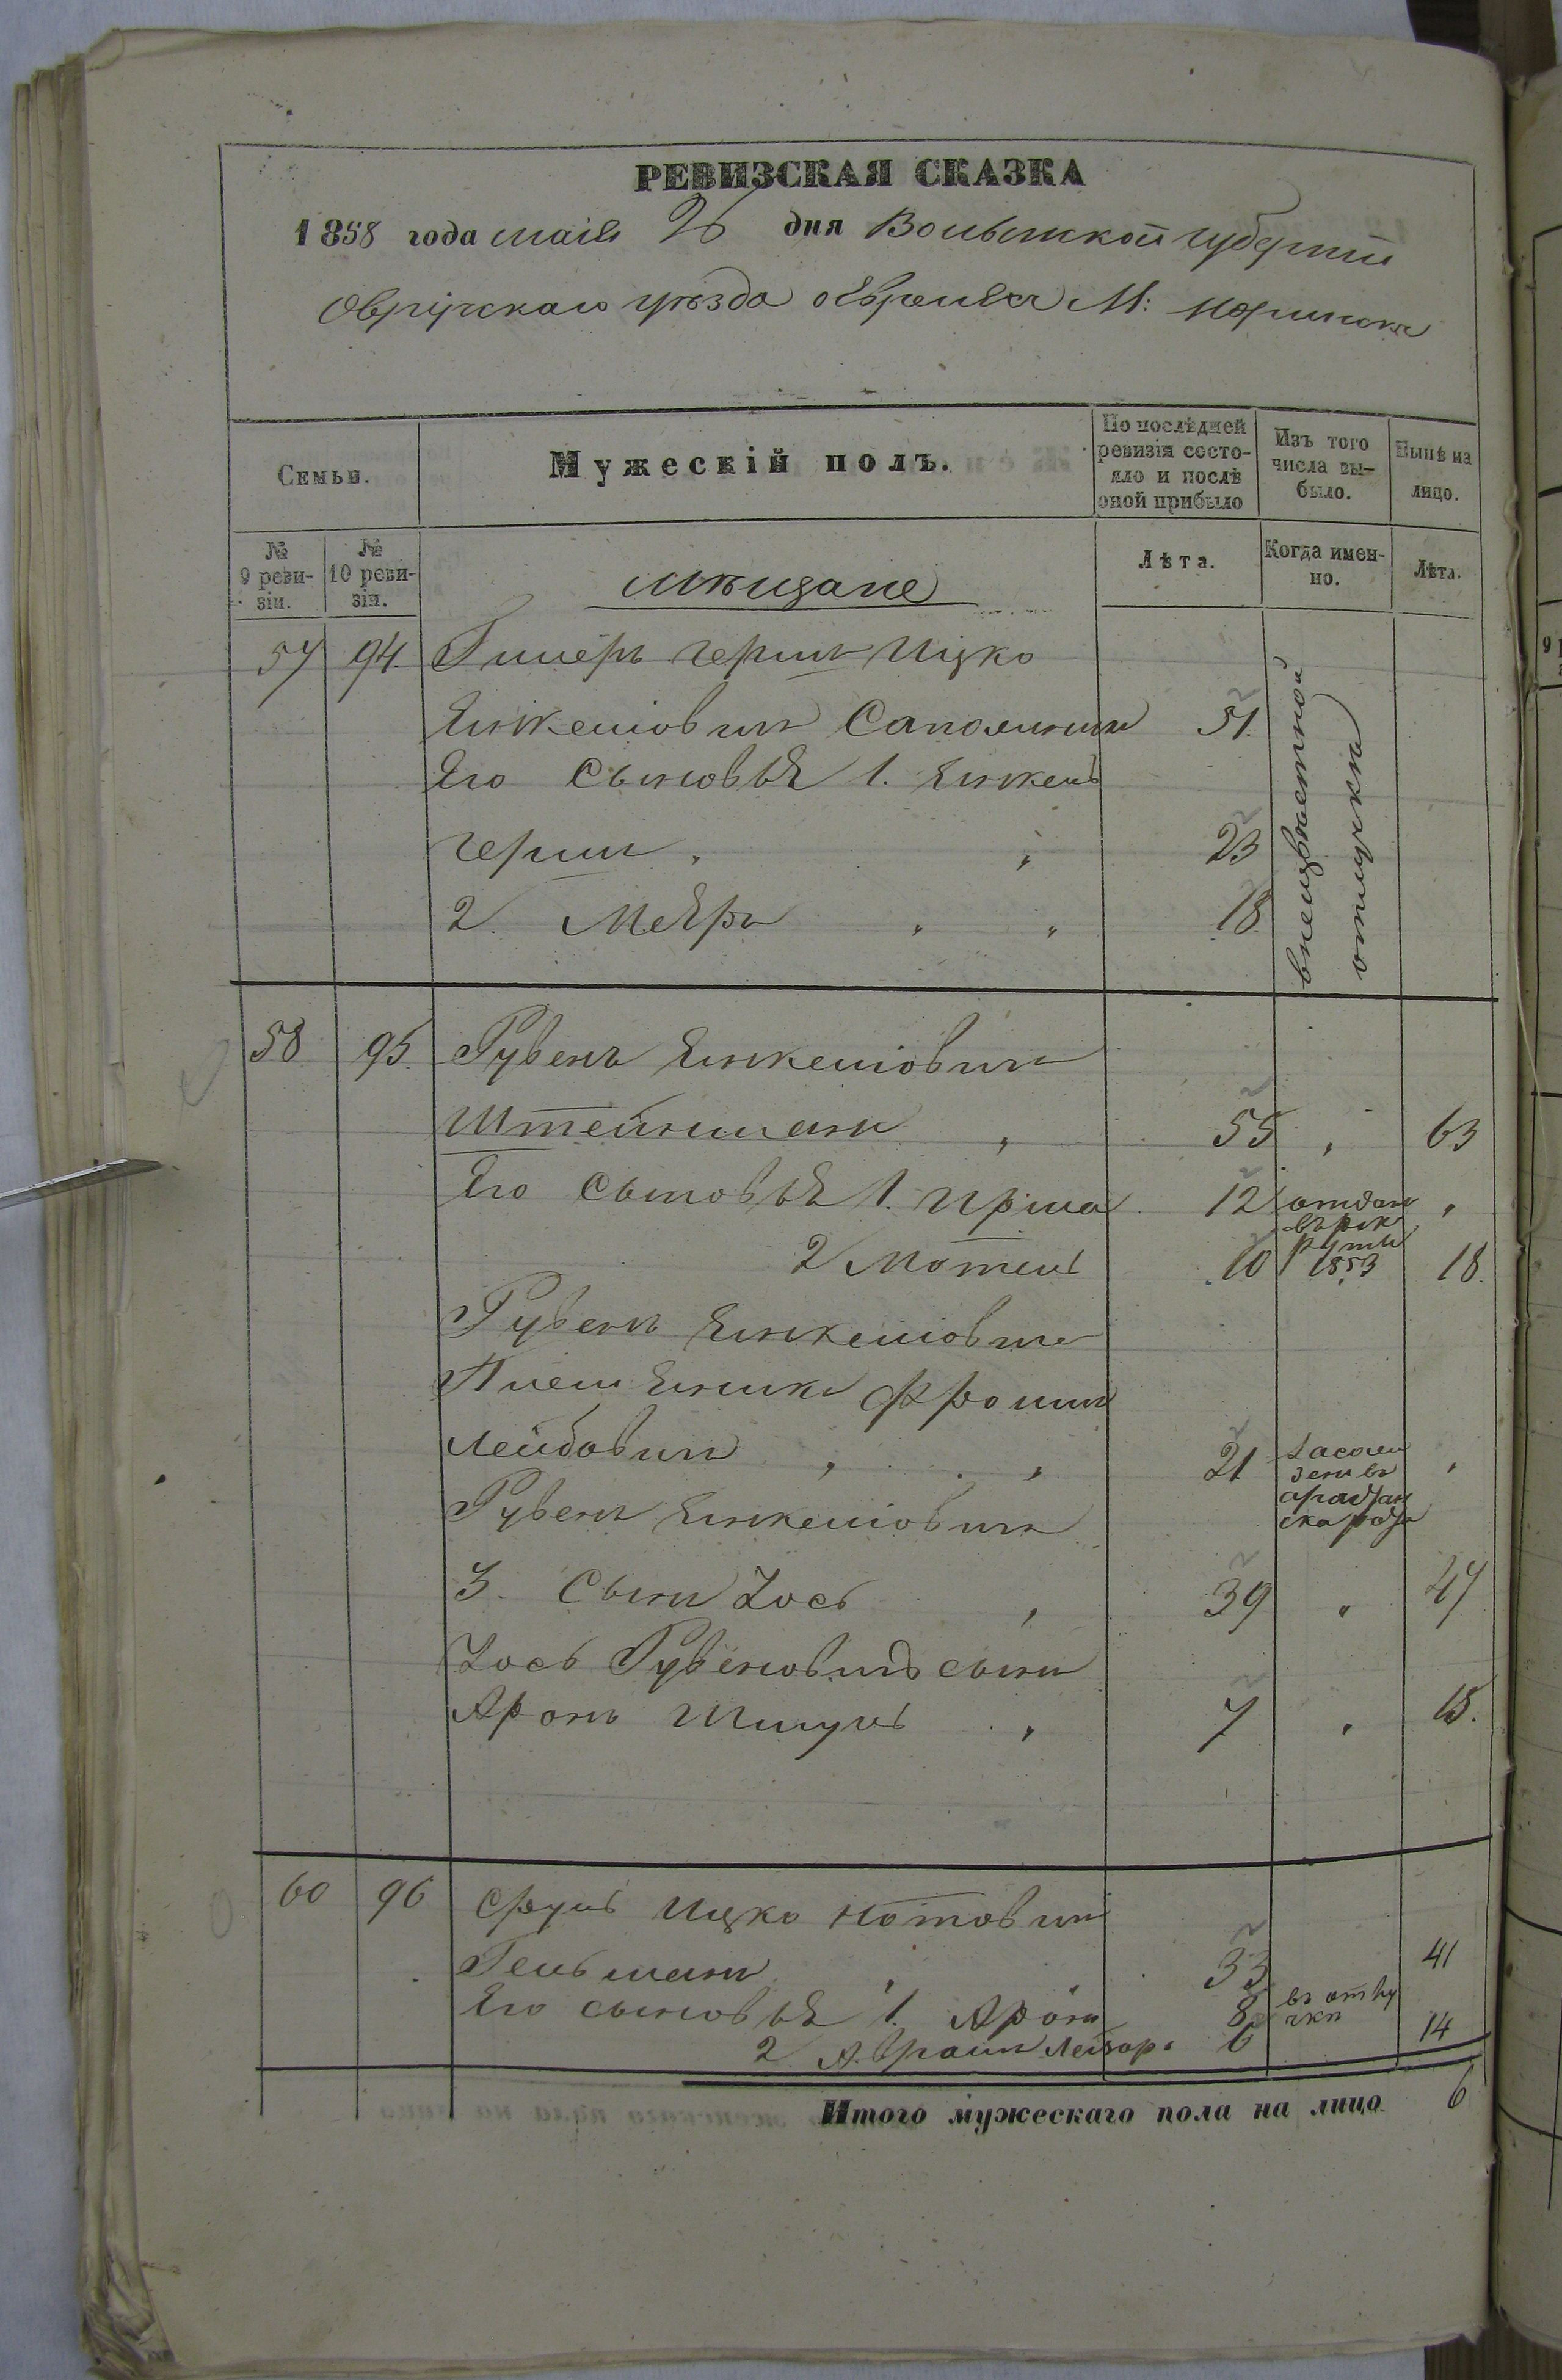 РЕВИЗСКАЯ СКАЗКА
1858 года маія 26 дня Волынской губерніи
Овручскаго уѣзда о Евреяхъ М: Норинска
Семьи.
Мужескій полъ.
По послѣдней ревизіи состояло и послѣ оной прибыло
Изъ того числа выбыло.
Нынѣ на лицо.
№ 9 ревизіи.
№ 10 ревизіи.
мѣщане
Лѣта.
Когда именно.
Лѣта.
57 94. Гершъ Ицко
Янкеліовичъ 51.
Его сыновья 1. Янкель
Гершъ 23
2. Мееръ 18
отлучки
58 95. Рувенъ Янкеліовичъ
Штейнманъ 55 63
Его сыновья 1. Ирша 12 отданъ въ рекруты 1853
2 Мотель 10 18.
Рувенъ Янкеліовича
Племянникъ Фроимъ
Лейбовичъ 21
Рувенъ Янкеліовичъ
3. Сынъ Іось 39 47
Іось Рувеновича сынъ
Аронъ Шмуль 7 15.
60 96 Сруль Ицко Нотовичъ
Гельманъ 33 41
Его сыновья 1. Аронъ 8 въ отлучкѣ
2 Авраамъ Лейзоръ 6 14
Итого мужескаго пола на лицо 6